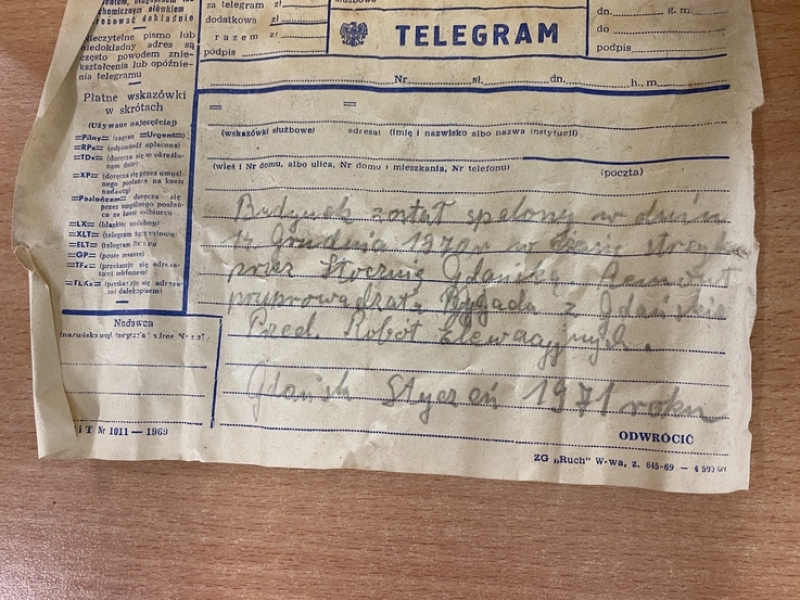 chemicznym ołówkiem
stosować dokładnie
Nieczytelne pismo lub
niedokładny adres są
często powodem znie-
kształcenia lub opóźnie-
nia telegramu
Płatne wskazówki
w skrótach
(Używane najczęściej)
=Pilny= (zagra =Urgent=)
=RPx= (odpowiedź opłacona)
=TDx= (doręcza się w określo-
nym dniu)
=XP= (doręcza się przez umyśl-
nego posłańca na koszt
nadawcy)
=Posłańcem= doręcza się
przez umyślnego posłań-
ca na koszt odbiorcy
=LX= (blankiet ozdobny)
=XLT= (telegram
=ELT= (telegram
=GP= (poste restante)
=TFx= (przekazuje się adresa-
towi telefonem)
=TLXx= (przekazuje się adresa-
towi dalekopisem)
Nadawca
za telegram zł
dodatkowa zł
razem zł
podpis
TELEGRAM
dn. g. m.
do
podpis
Nr sł. dn. h., m.
= =
(wskazówki służbowe) adresat (imię i nazwisko albo nazwa instytucji)
(wieś i Nr domu, albo ulica, Nr domu i mieszkania, Nr telefonu) (poczta)
Budynek został spalony w dniu
Grudnia 1970 r w czasie strzyku
przez Stocznię Gdańską. Remont
przyprowadzała Brygada z Gdańska
Przed. Robot Elewacyjnych.
Gdańsk Styczeń 1971 roku
ODWRÓCIĆ
iT Nr 1011 — 1969
ZG „Ruch" W-wa, z. 645-69 — 4 500 000